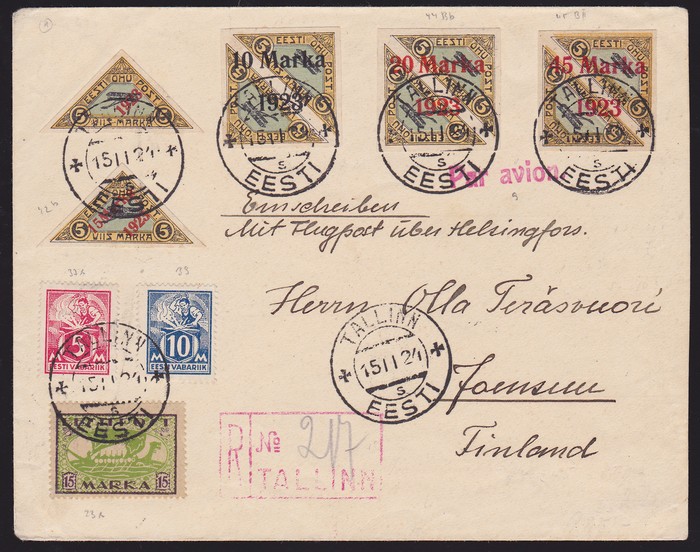 44Bb
EESTI ÕHU POST
5 5
1923
VIIS MARKA
10 Marka
1923
EESTI ÕHU POST
20 Marka
1923
EESTI ÕHU POST
45 Marka
1923
TALLINN
15 II 24
s
EESTI
TALLINN
15 II 24
s
EESTI
TALLINN
15 II 24
s
EESTI
TALLINN
15 II 24
s
EESTI
Par avion
5 5
1923
VIIS MARKA
Einschreiben
Mit Flugpost über Helsingfors.
33A 39
5
M M
EESTI VABARIIK
10
M M
EESTI VABARIIK
TALLINN
15 II 24
s
EESTI
Herrn Olla Teräsvuori
TALLINN
15 II 24
s
EESTI
Joensuu
Finland
15 MARKA 15
R № 217
TALLINN
23A